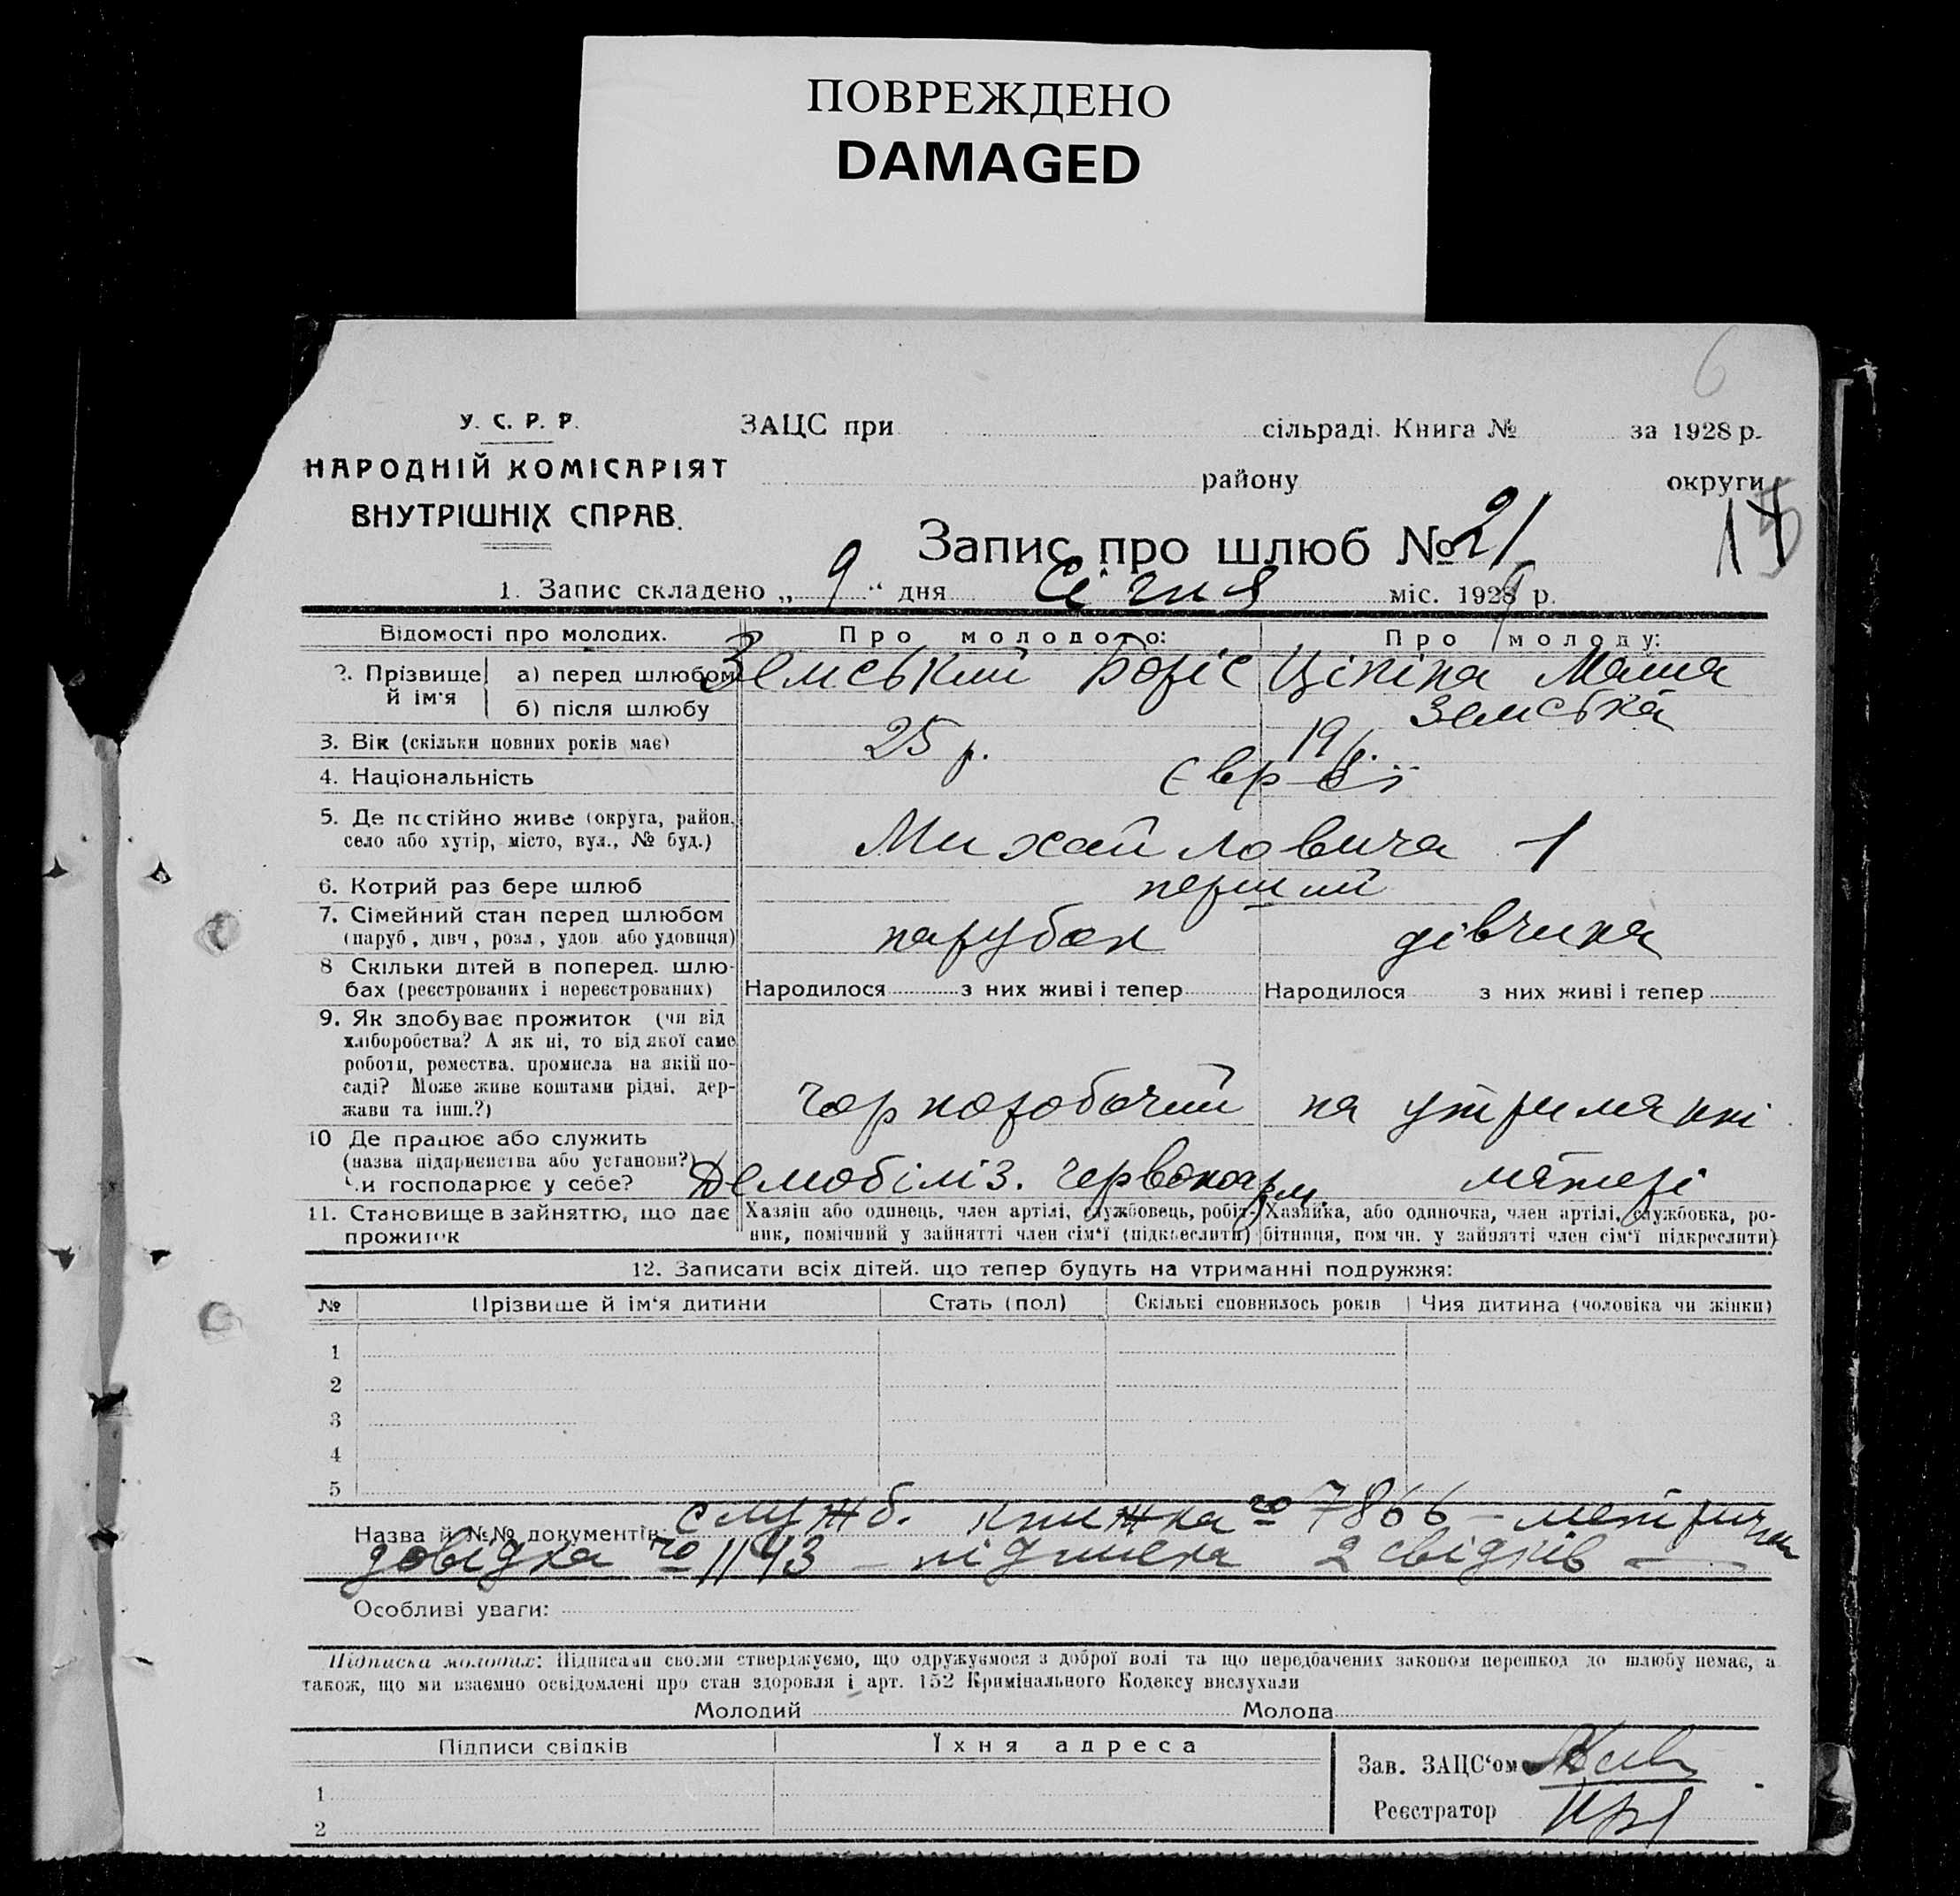 ПОВРЕЖДЕНО
DAMAGED
6
У. С. Р. Р.
НАРОДНІЙ КОМІСАРІЯТ
ВНУТРІШНІХ СПРАВ.
ЗАЦС при сільраді. Книга № за 1928 р.
району округи
Запис про шлюб № 21
1. Запис складено „ 9 “ дня Січня міс. 1929 р.
Відомості про молодих. Про молодого: Про молоду:
2. Прізвище й ім'я а) перед шлюбом Земський Боріс Ціпіна Маша
б) після шлюбу Земська
3. Вік (скільки повних років має) 25 р. 19 р.
4. Національність євреї
5. Де постійно живе (округа, район,
село або хутір, місто, вул., № буд.) Михайловича 1
6. Котрий раз бере шлюб перший
7. Сімейний стан перед шлюбом
(паруб, дівч, розл, удов. або удовиця) парубок дівчина
8 Скільки дітей в поперед. шлю-
бах (реєстрованих і нереєстрованих) Народилося з них живі і тепер Народилося з них живі і тепер
9. Як здобуває прожиток (чи від
хліборобства? А як ні, то від якої саме
роботи, ремества. промисла на якій по-
саді? Може живе коштами рідні, дер-
жави та інш.?) Чорноробочий на утриманні
10 Де працює або служить
(назва підприємства або установи?)
Чи господарює у себе? Демобіліз. червоноарм матері
11. Становище в зайняттю, що дає
прожиток
Хазяїн або одинець, член артілі, службовець, робіт-
ник, помічний у зайнятті член сім'ї (підкреслити)
Хазяйка, або одиночка, член артілі, службовка, ро-
бітниця, помічн. у зайнятті член сім'ї підкреслити)
12. Записати всіх дітей. що тепер будуть на утриманні подружжя:
№ Прізвище й ім'я дитини Стать (пол) Скількі сповнилось років Чия дитина (чоловіка чи жінки)
1
2
3
4
5
Назва й №№ документів служб. книжка № 7866 – метрична
довідка № 1193 – підписка 2 свідків –
Особливі уваги:
Підписка молодих: Підписами своїми стверджуємо, що одружуємося з доброї волі та що передбачених законом перешкод до шлюбу немає, а
також, що ми взаємно освідомлені про стан здоровля і арт. 152 Кримінального Кодексу вислухали
Молодий Молода
Підписи свідків Їхня адреса
Зав. ЗАЦС'ом
1
Реєстратор
2